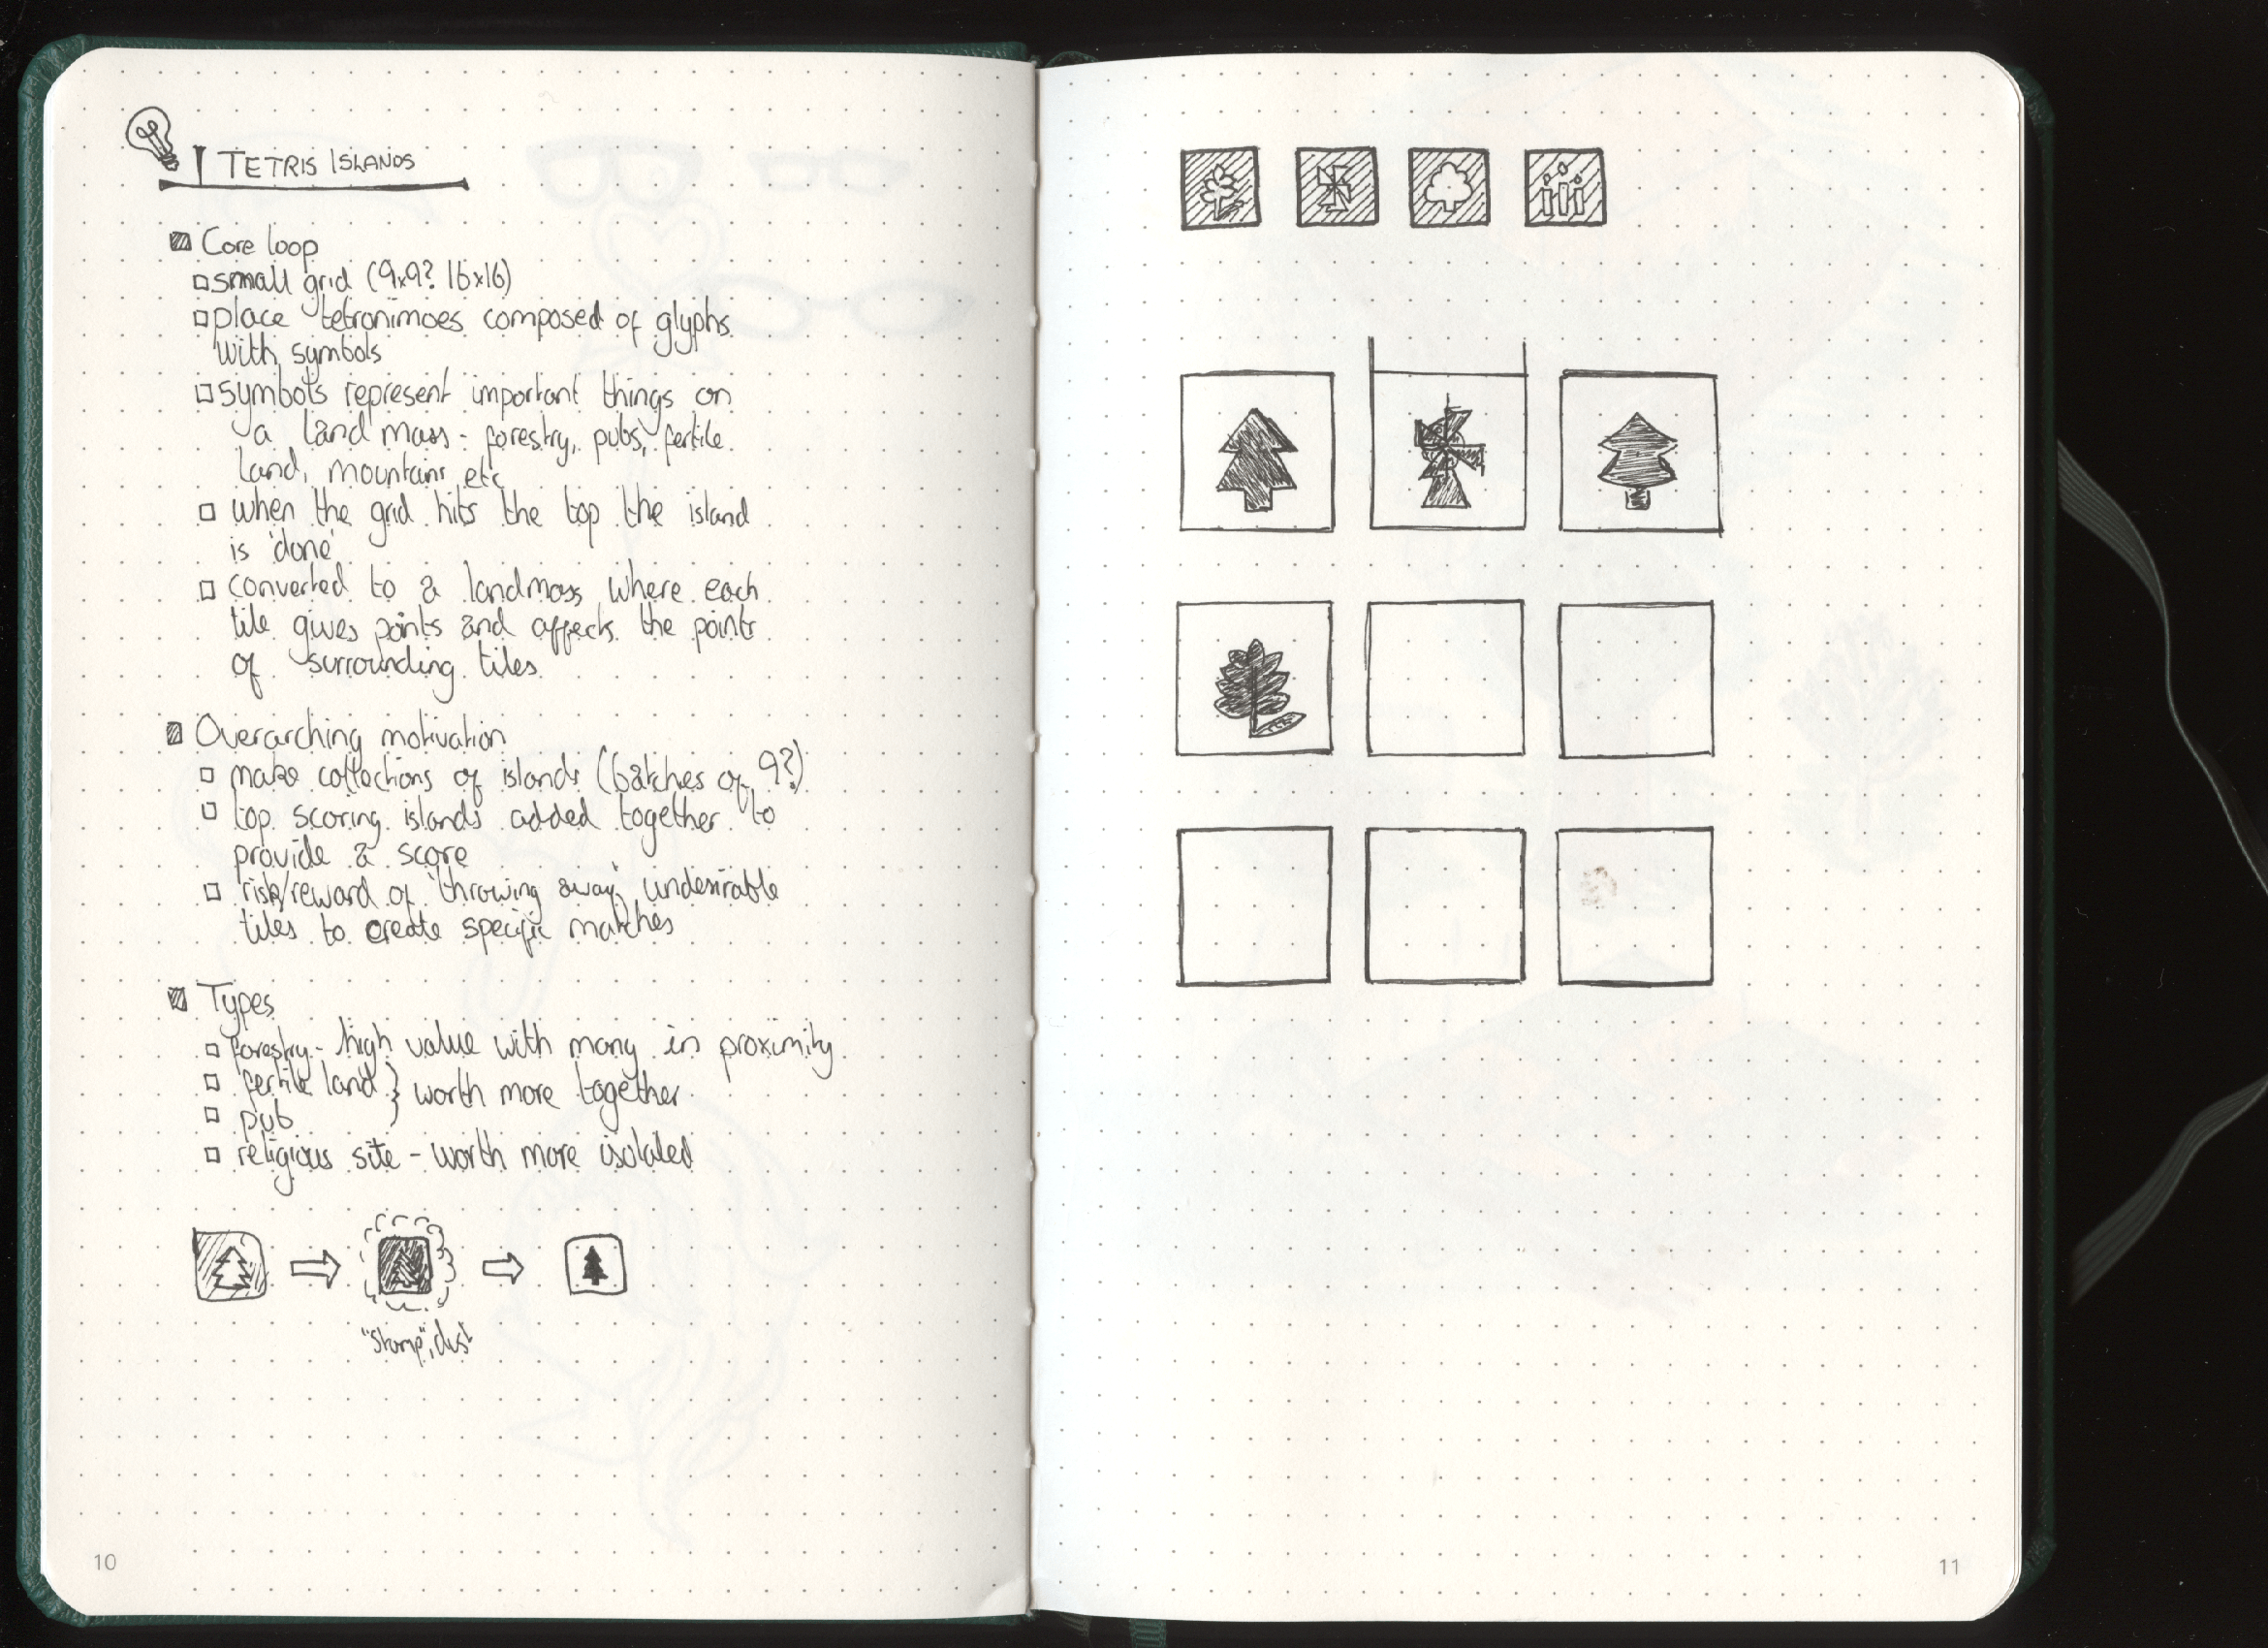 TETRIS ISLANDS
Core loop
small grid (9x9? 16x16)
place tetronimoes composed of glyphs
with symbols
symbols represent important things on
a land mass - forestry, pubs, fertile
land, mountains etc
when the grid hits the top the island
is 'done'
converted to a landmass where each
tile gives points and affects the points
of surrounding tiles
Overarching motivation
make collections of islands (batches of 9?)
top scoring islands added together to
provide a score
risk/reward of 'throwing away' undesirable
tiles to create specific matches
Types
forestry - high value with many in proximity
fertile land } worth more together
pub
religious site - worth more isolated
"stamp", dust
10
11